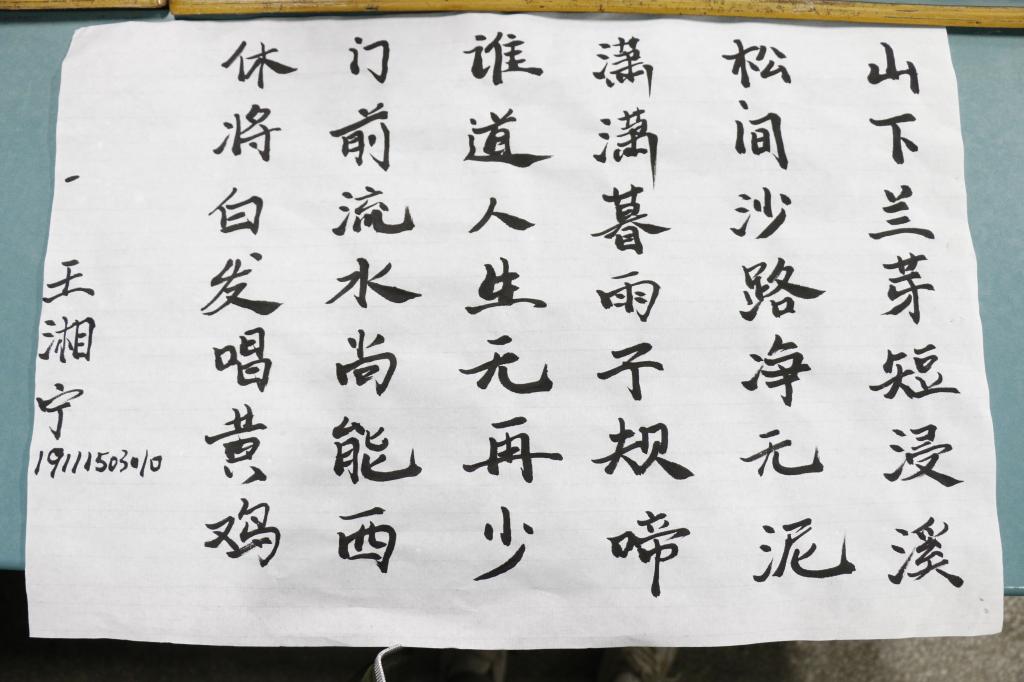 山下兰芽短浸溪
松间沙路净无泥
潇潇暮雨子规啼
谁道人生无再少
门前流水尚能西
休将白发唱黄鸡
王湘宁
19111503010